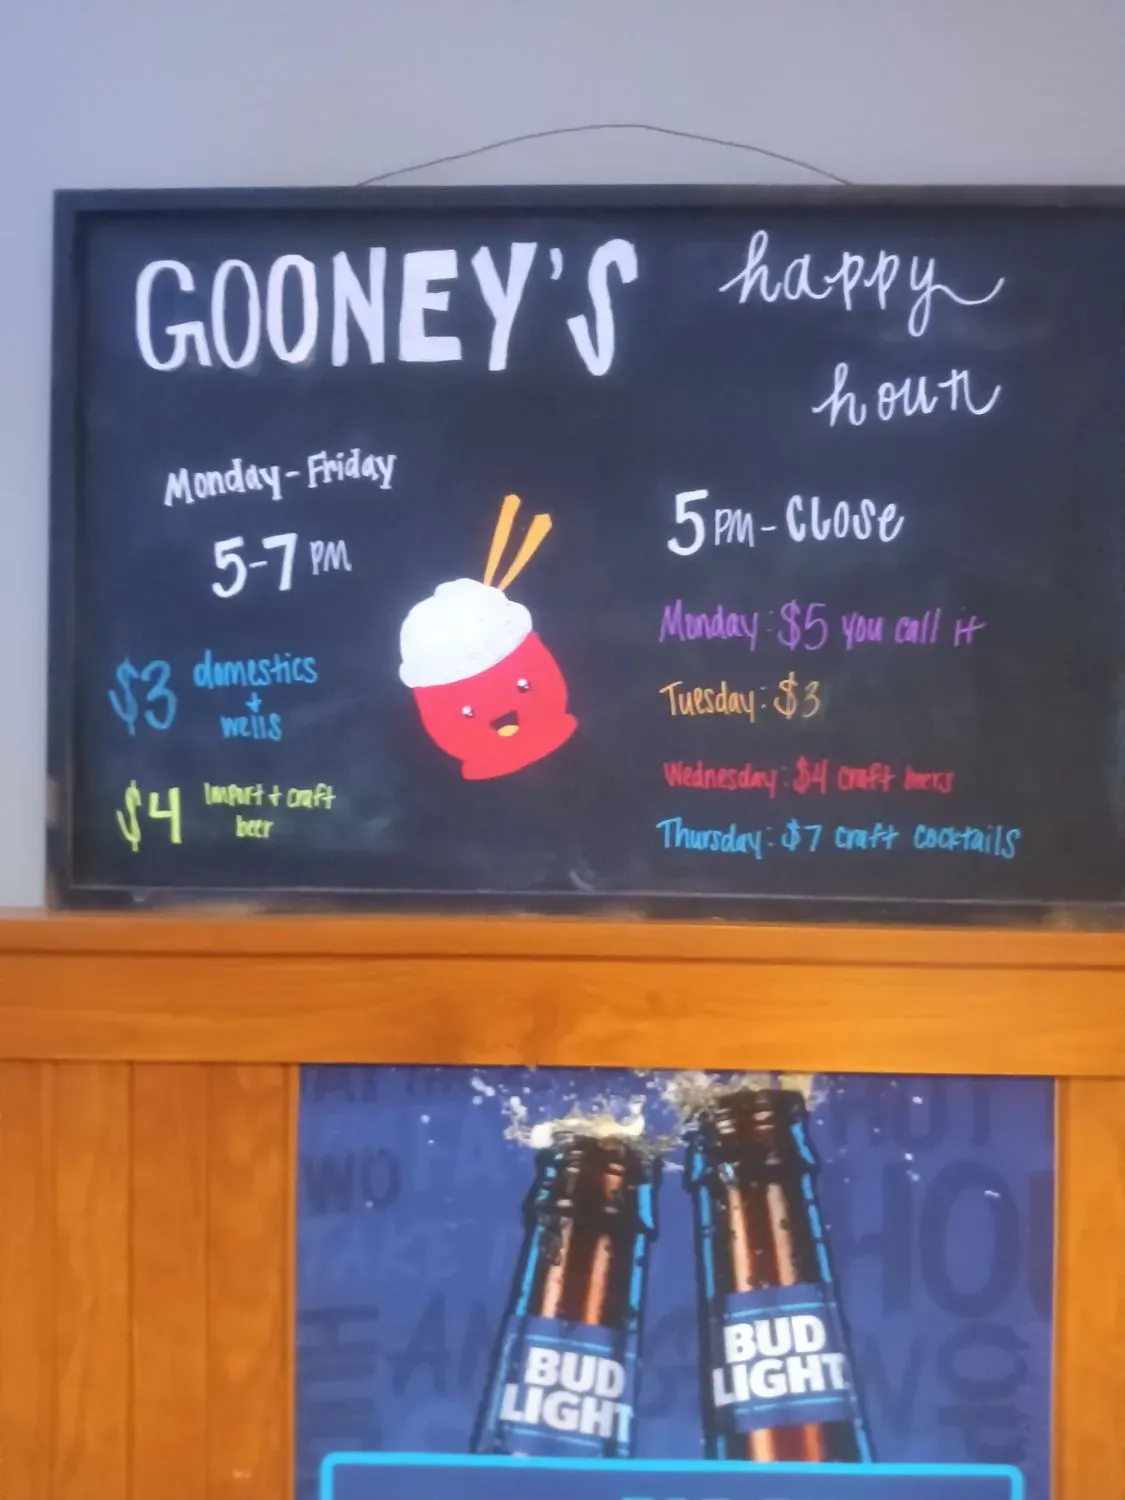 GOONEY'S
happy
hour
Monday-Friday
5-7 PM
$3 domestics
+
wells
$4 Import + craft
beer
5 PM - Close
Monday: $5 you call it
Tuesday: $3
Wednesday: $4 craft beers
Thursday: $7 craft cocktails
WO
TAKE
HO
BUD
LIGHT
BUD
LIGHT